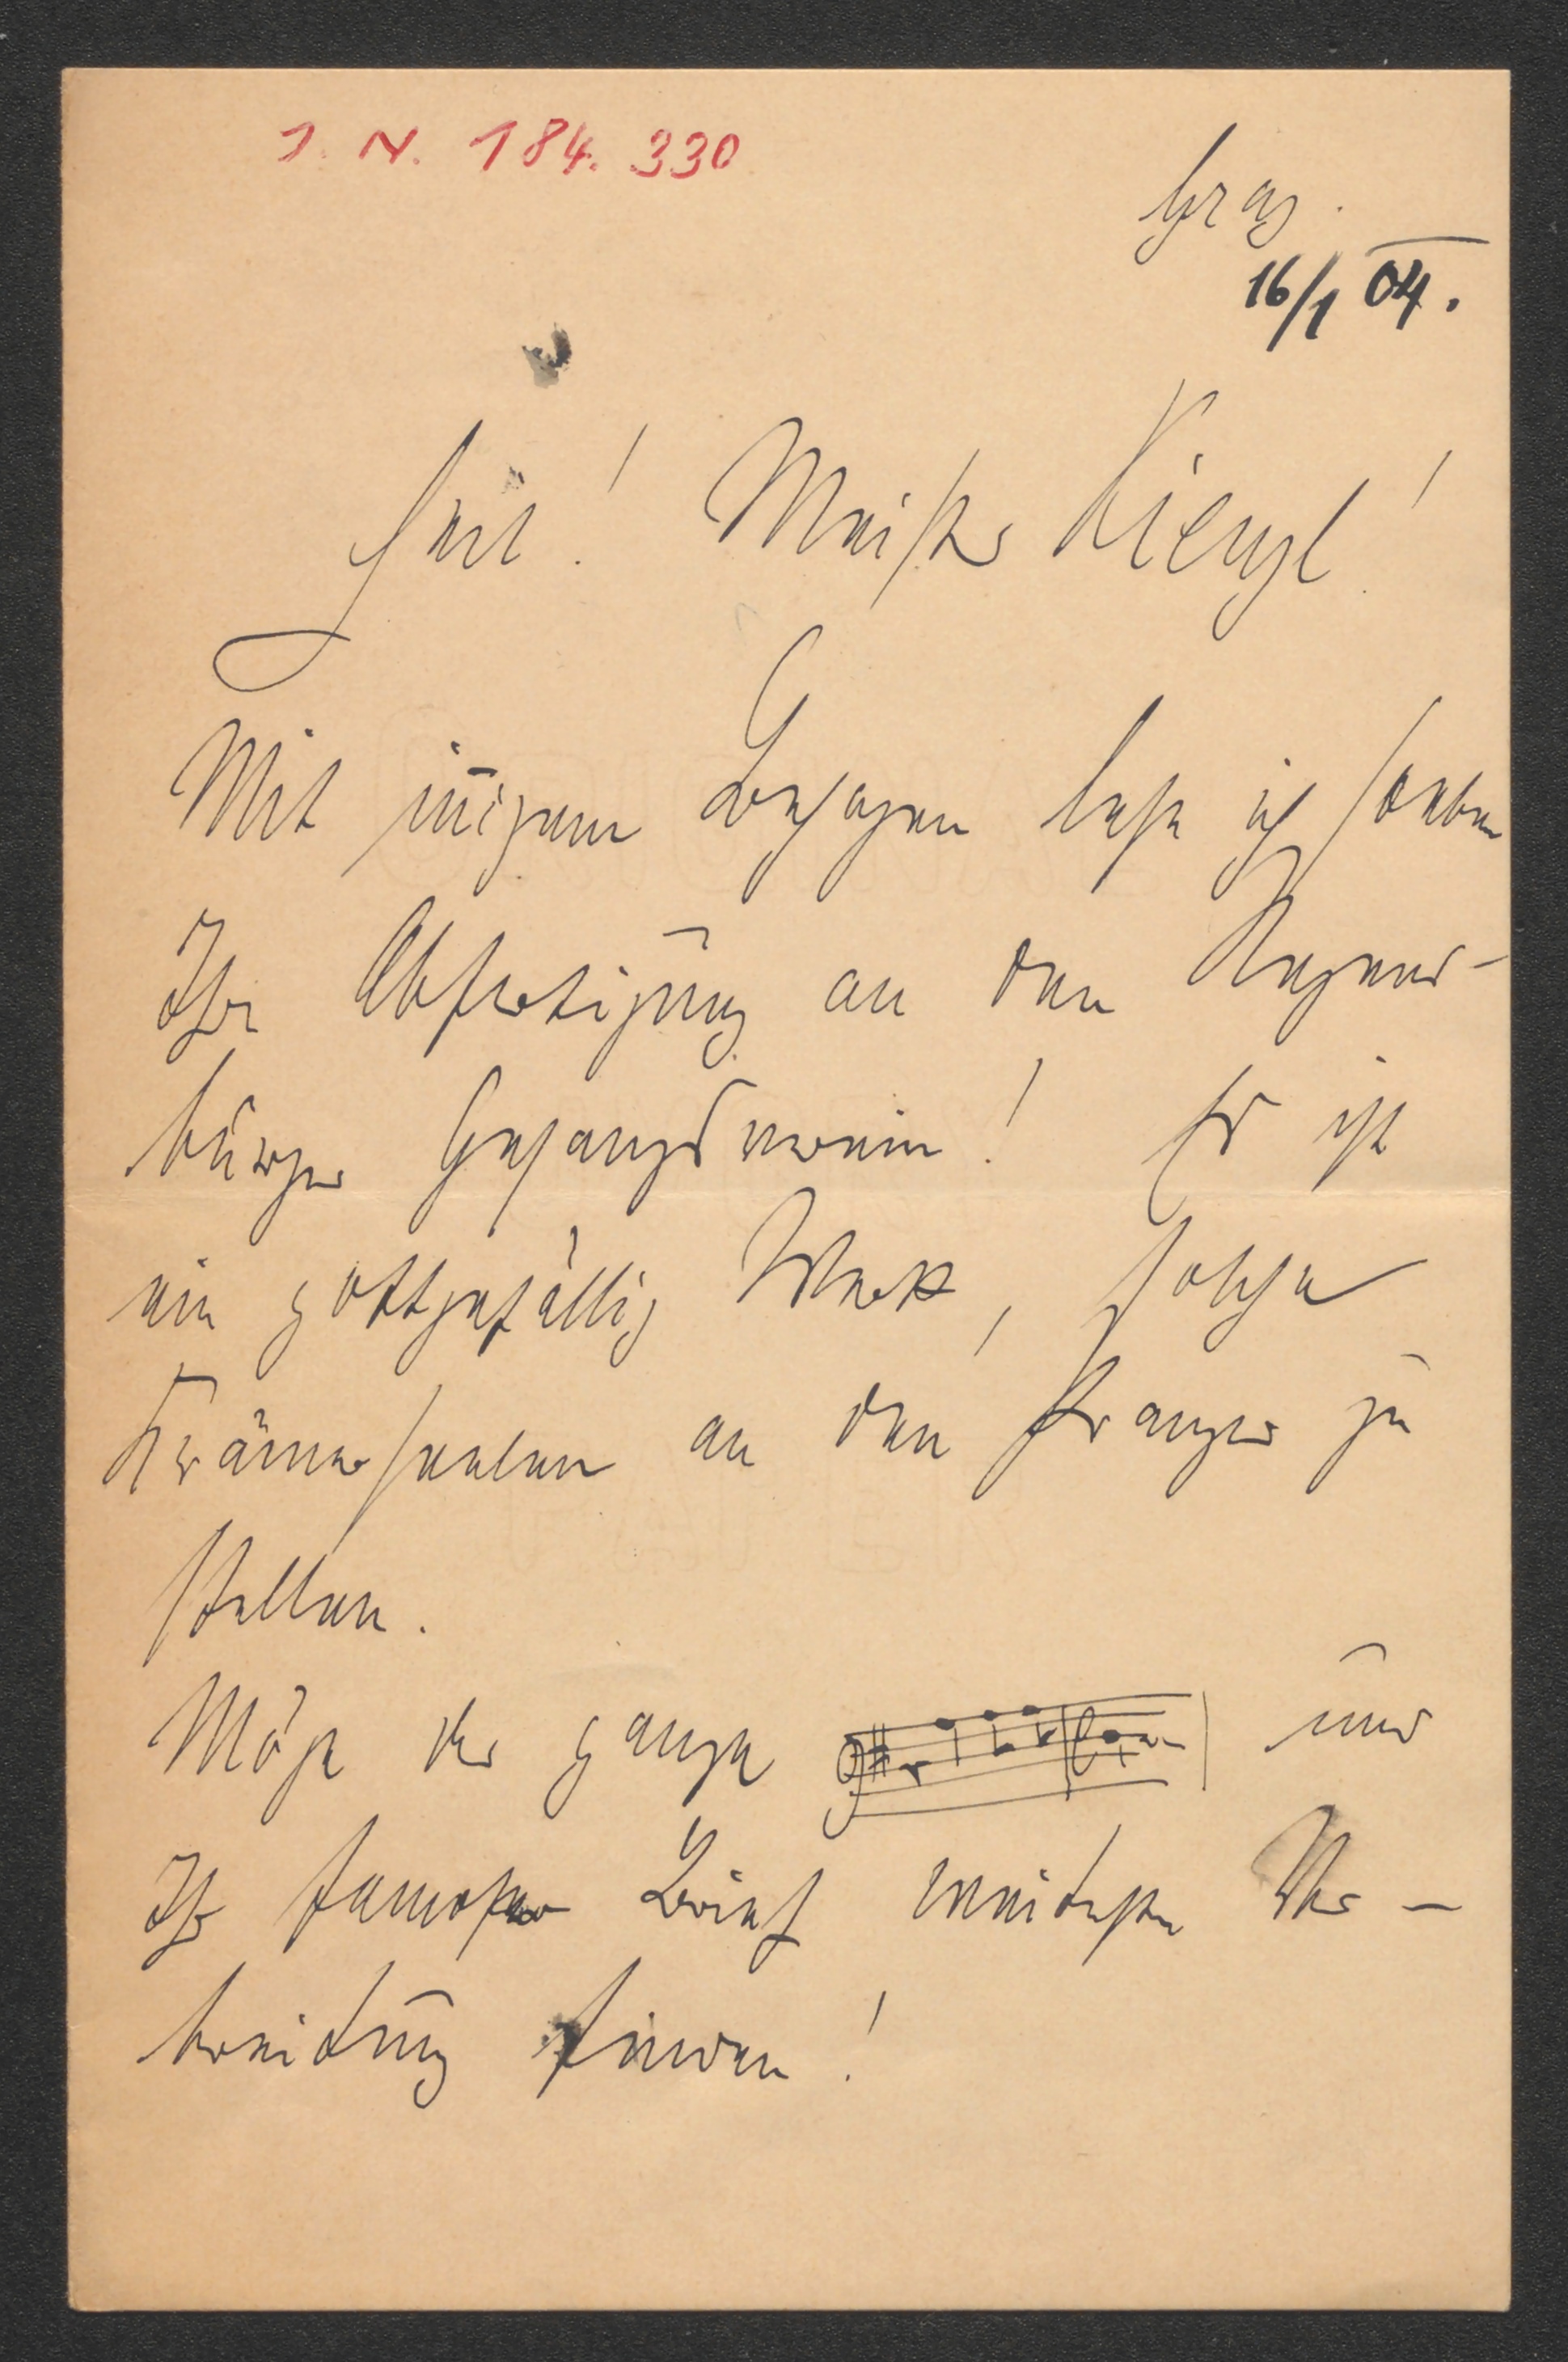 I. N. 184.330
Graz.
16/1 04.
Heil! Meister Kienzl!
Mit inn̄igem Behagen lese ich soeben
Ihre Abfertigung an den Regens-
burger Gesangsverein! Es ist
ein gottgefällig Werk, solche
Krämerseelen an den Pranger zu
stellen.
Möge der ganze und
Ihr famoser Brief weiteste Ver-
breitung finden!